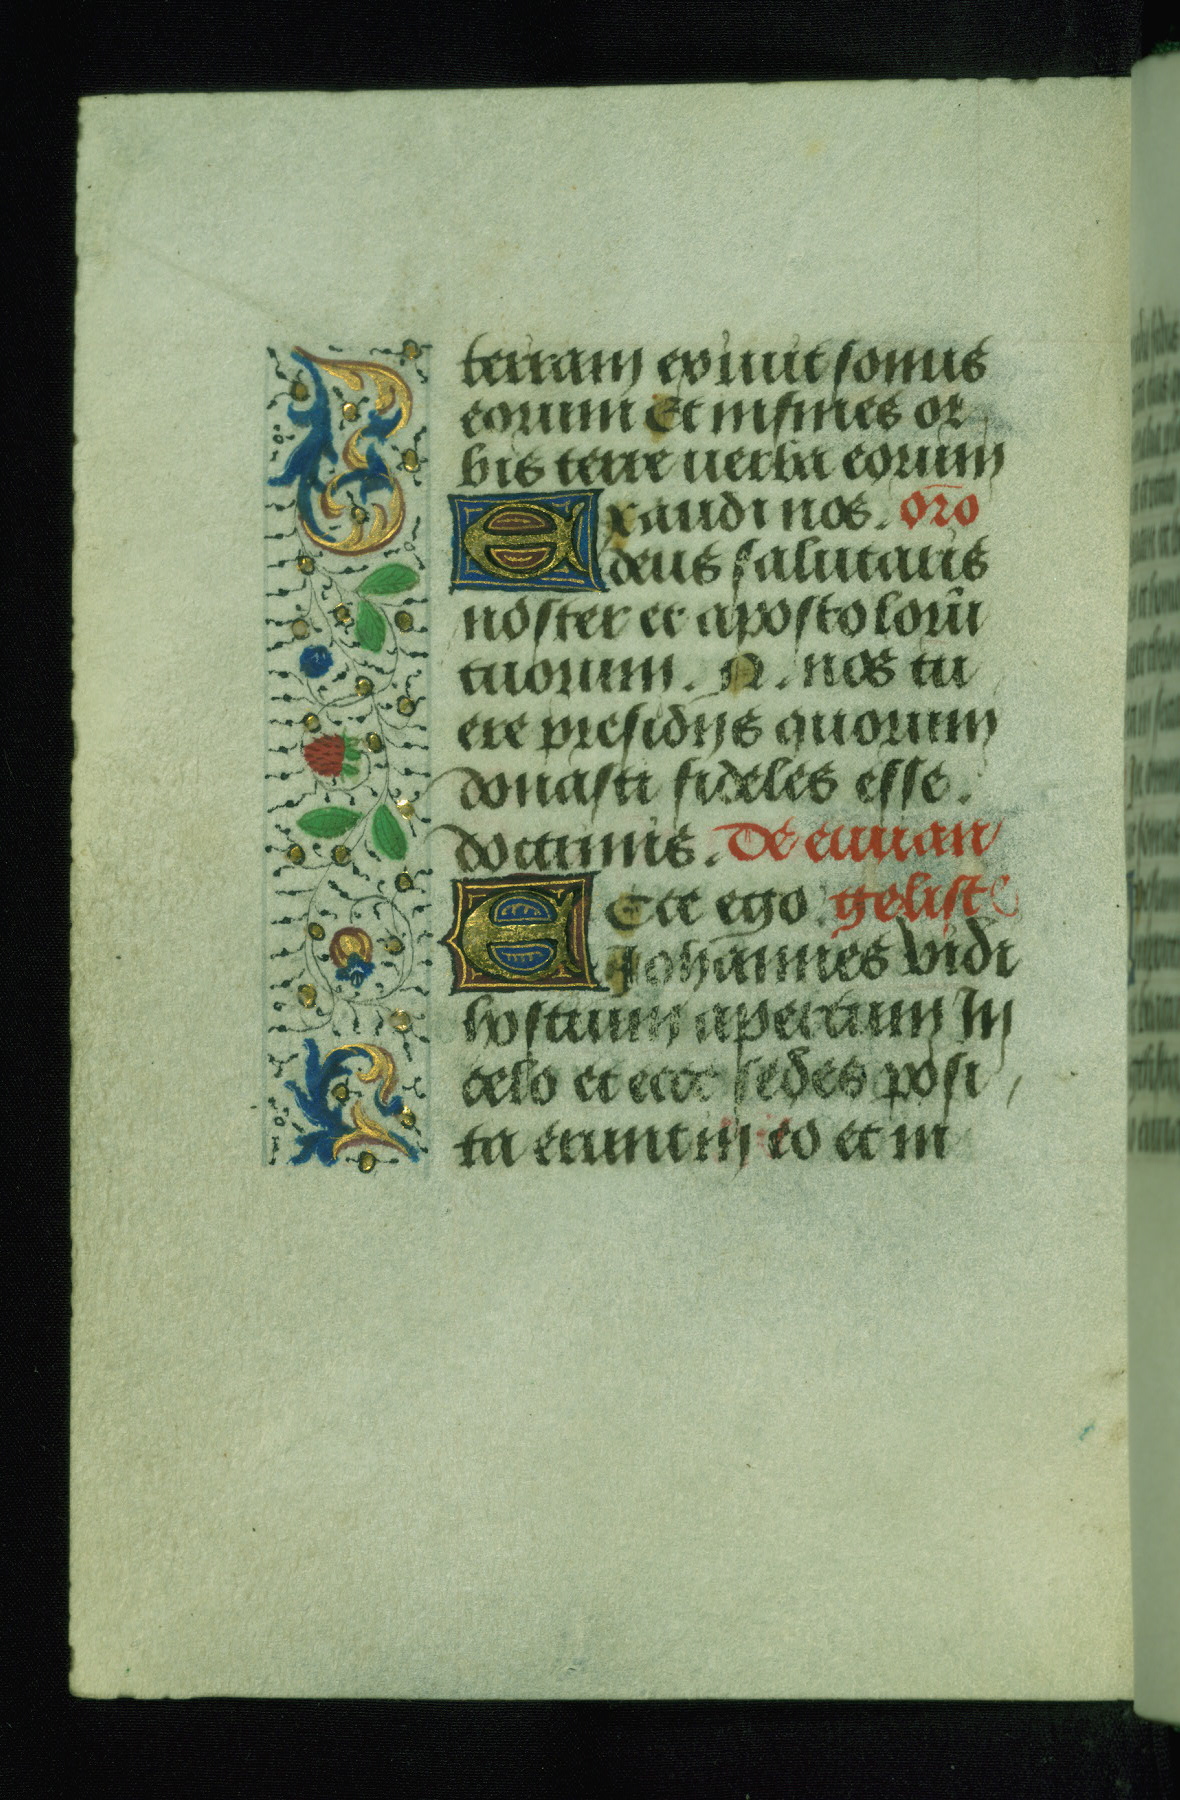 terram exiuit sonus
eorum Et in fines or
bis terre uerba eorum
Exaudi nos. oro
deus salutaris
noster et apostoloru
tuorum. N. nos tu
ere presidijs quorum
donasti fideles esse.
doctrinis. De euuan
Ecce ego geliste
Johannes vidi
hostium apertum In
celo et ecce sedes posi
ta erunt in eo et in